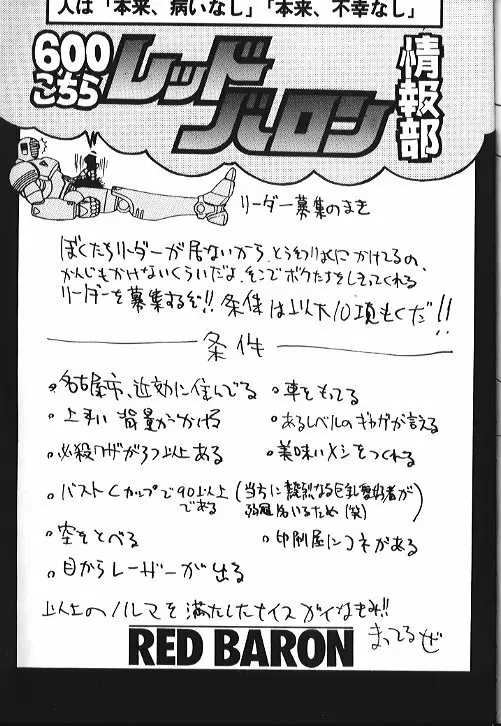 人は「本来、病いなし」「本来、不幸なし」
600
こちら
レッド
バロン
情報部
リーダー募集のまき
ぼくたちリーダーが居ないから、とうわりょくにかけてるの、
かんじもかけないくらいだよ、そこでボクたちをしてくれる
リーダーを募集するぞ!!条件は以下10項もくだ!!
条件
・名古屋市、近効に住んでる
・車をもってる
・上手い背景がかける
・あるレベルのギャグが言える
・必殺ワザが3つ以上ある
・美味いメシをつくれる
・バストCカップで90以上
である
(当方に熱烈なる巨乳愛好者が
いるため(笑))
・空をとべる
・印刷屋にコネがある
・目からレーザーが出る
以上のノルマを満たしたナイスガイなきみ!!
まってるぜ
RED BARON